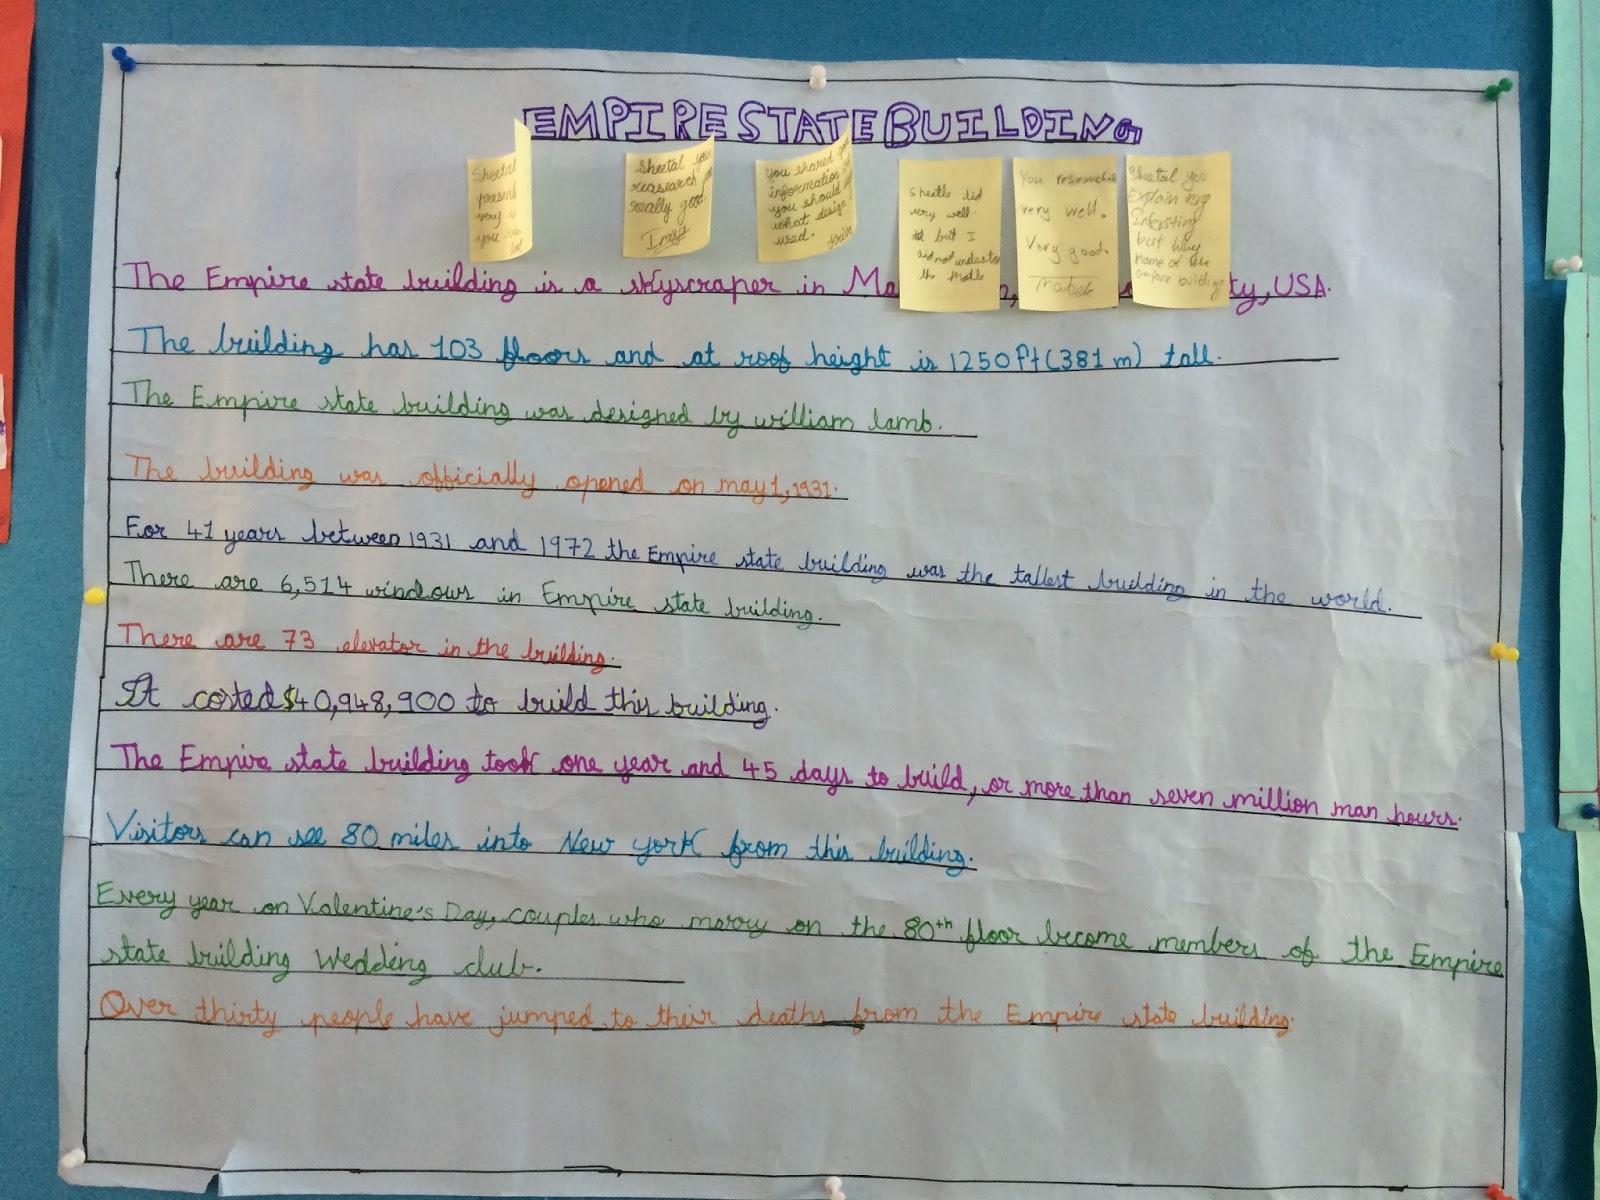 EMPIRE STATE BUILDING
Sheetal
very
you
Sheetal you
reasearch
really good.
Inaya
You shared
information
you should
what design
used.
sheatle did
very well
but I
did not understa
the
You researche
very well.
Very good.
Mabek
Sheetal you
Explain very
intersting
but why
name of the
empare building
The Empire state building is a skyscraper in Ma ty, USA.
The building has 103 floors and at roof height is 1250ft(381 m) tall.
The Empire state building was designed by william lamb.
The building was officially opened on may 1, 1931.
For 41 years between 1931 and 1972 the Empire state building was the tallest building in the world.
There are 6,514 windows in Empire state building.
There are 73 elevator in the building.
It costed $40,948,900 to build this building.
The Empire state building took one year and 45 days to build, or more than seven million man hours.
Visitors can see 80 miles into New york from this building.
Every year on Valentine's Day, couples who marry on the 80th floor become members of the Empire
state building Wedding club.
Over thirty people have jumped to their deaths from the Empire state building.